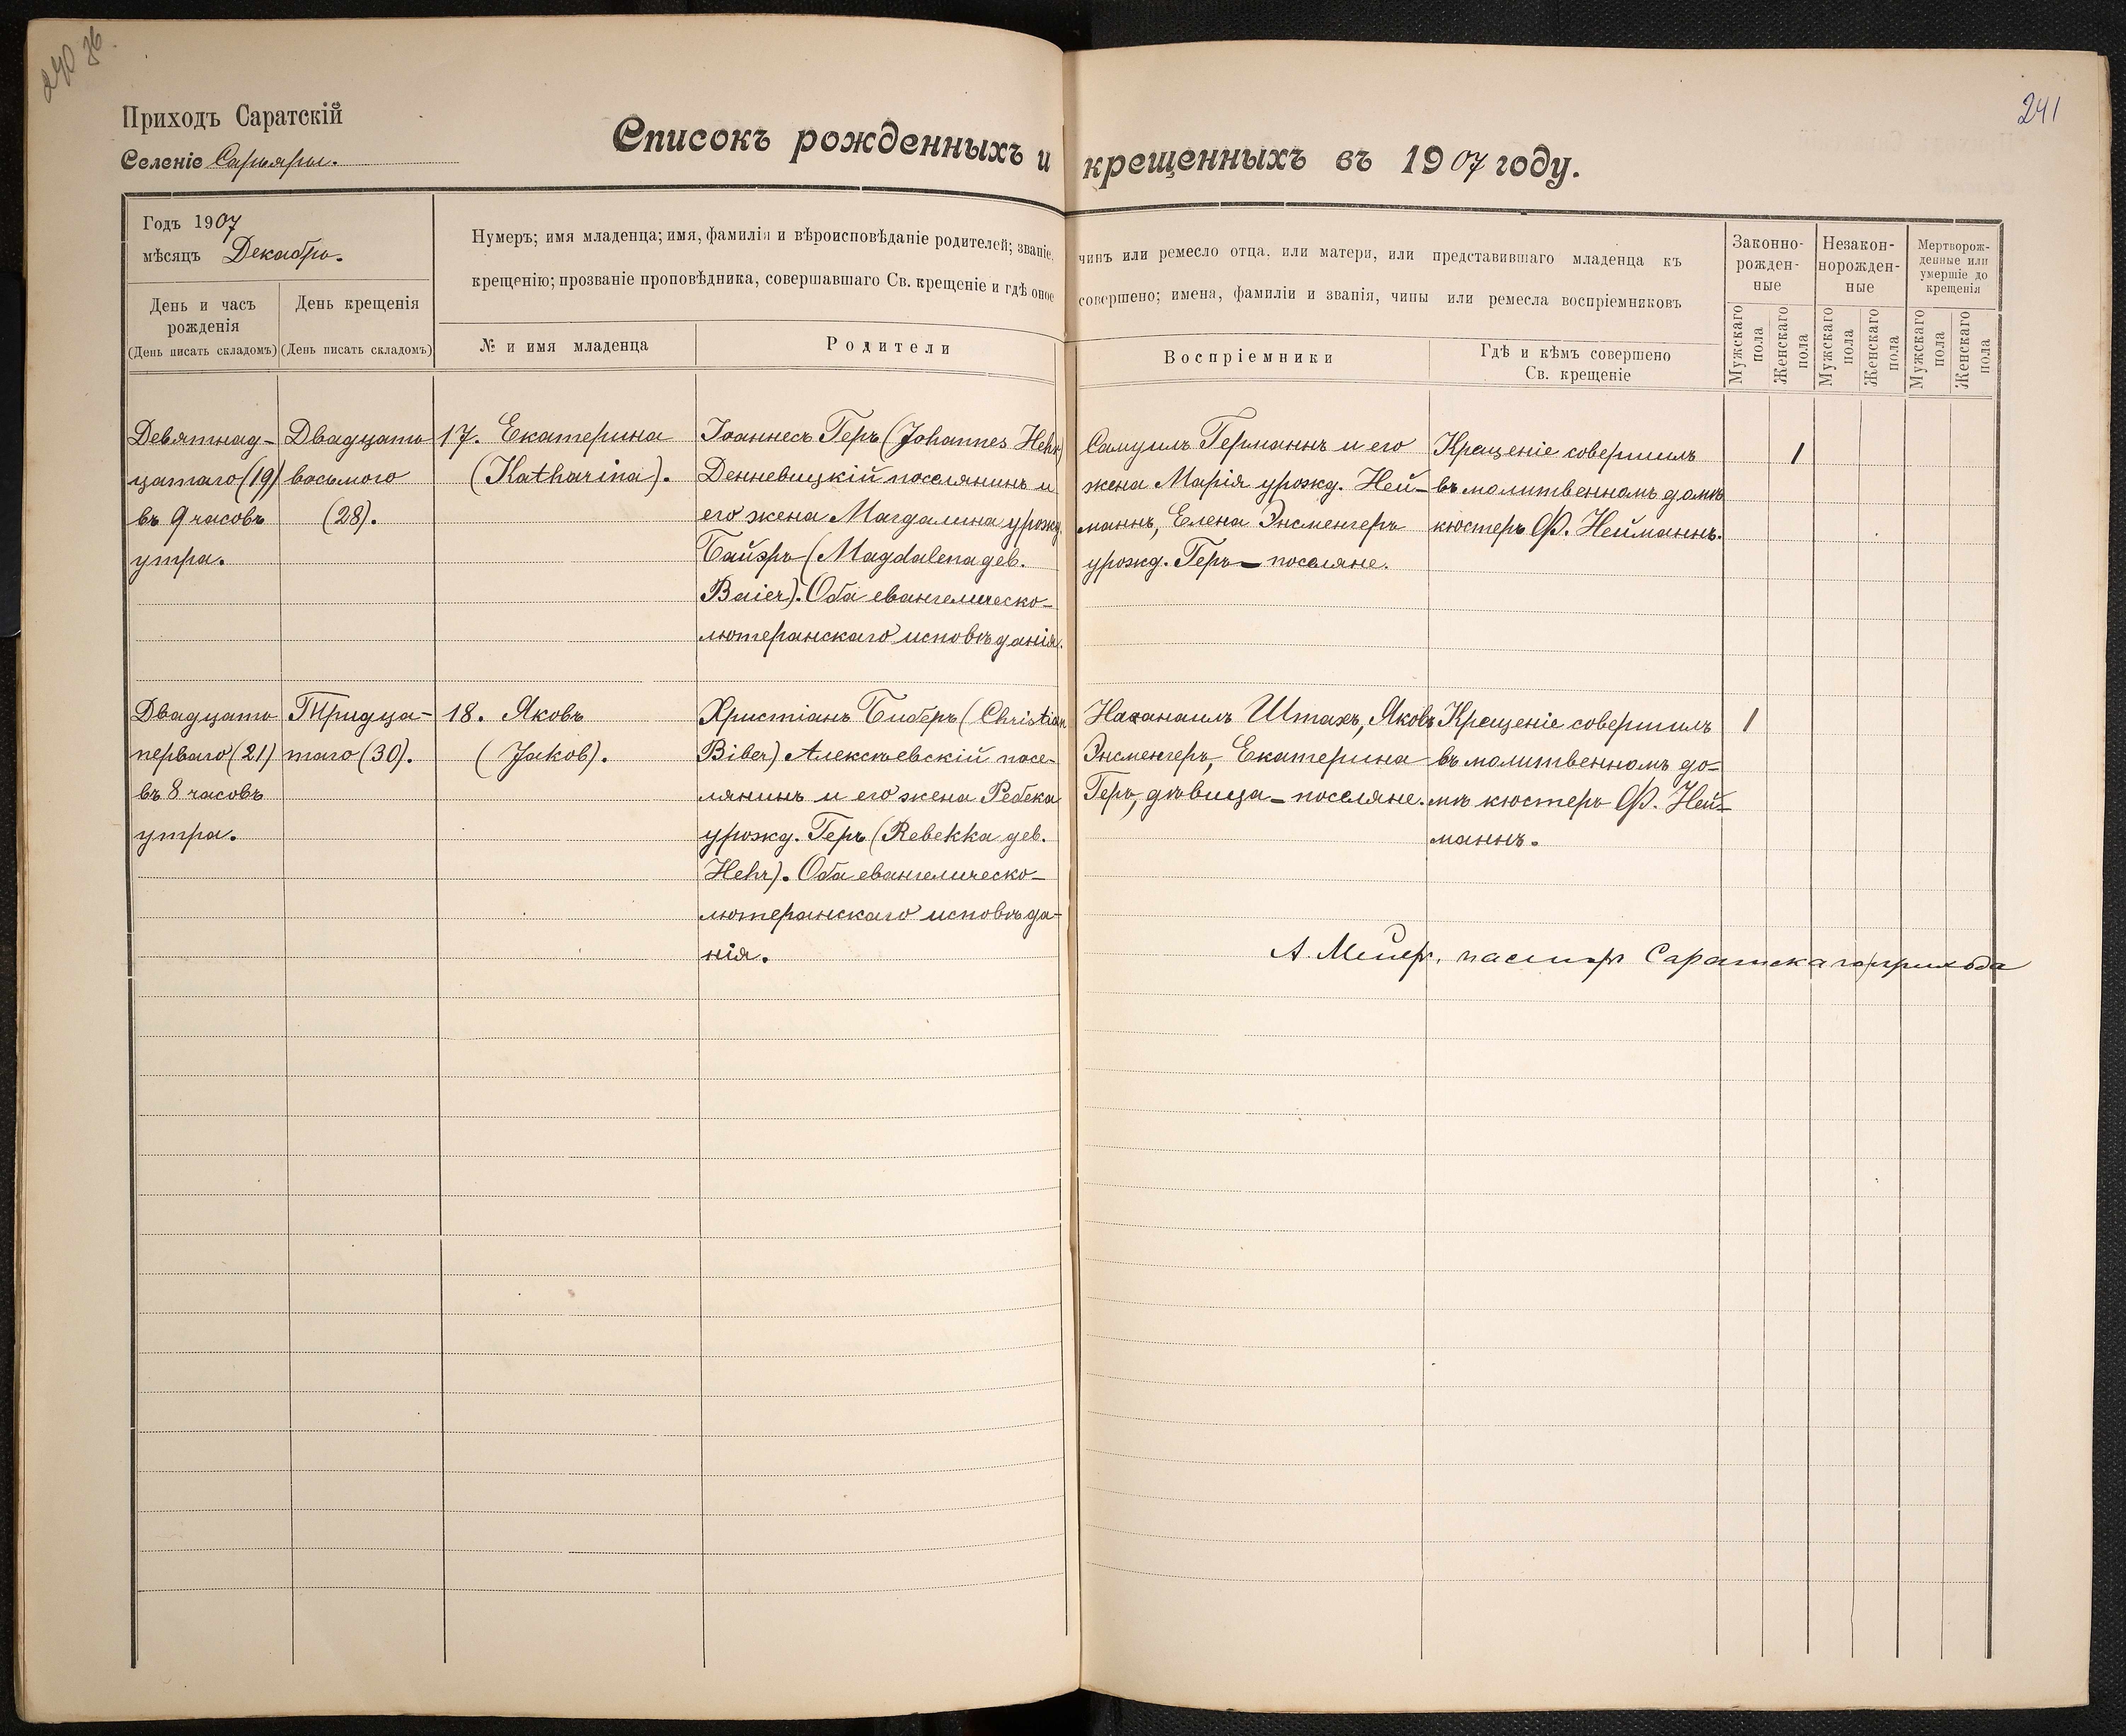 240 зв.
241
Приходъ Саратскій
Селеніе Сарьяры.
Списокъ рожденныхъ и крещенныхъ въ 1907 году.
Годъ 1907
мѣсяцъ Декабрь.
День и часъ рожденія
(День писать складомъ)
День крещенія
(День писать складомъ)
Нумеръ; имя младенца; имя, фамилія и вѣроисповѣданіе родителей; званіе, чинъ или ремесло отца, или матери, или представившаго младенца къ
крещенію; прозваніе проповѣдника, совершавшаго Св. крещеніе и гдѣ оное совершено; имена, фамиліи и званія, чины или ремесла воспріемниковъ
№ и имя младенца
Родители
Воспріемники
Гдѣ и кѣмъ совершено
Св. крещеніе
Законно-
рожден-
ные
Незакон-
норожден-
ные
Мертворож-
денные или
умершіе до
крещенія
Мужскаго пола
Женскаго пола
Мужскаго пола
Женскаго пола
Мужскаго пола
Женскаго пола
Девятнад-
цатаго (19)
въ 9 часовъ
утра.
Двадцать
восьмого
(28).
17. Екатерина
(Katharina).
Іоаннесъ Геръ (Johannes Hehr)
Денневицкій поселянинъ и
его жена Магдалина урожд.
Байэръ (Magdalena дев.
Baier). Оба евангелическо-
лютеранскаго исповѣданія.
Самуилъ Германнъ и его
жена Марія урожд. Ней-
маннъ, Елена Энсменгеръ
урожд. Геръ - поселяне.
Крещеніе совершилъ
въ молитвенномъ домѣ
кюстеръ Ф. Нейманнъ.
1
Двадцать
перваго (21)
въ 8 часовъ
утра.
Тридца-
таго (30).
18. Яковъ
(Jakob).
Христіанъ Биберъ (Christian
Biber) Алексѣевскій посе-
лянинъ и его жена Ребека
урожд. Геръ (Rebekka дев.
Hehr). Оба евангелическо-
лютеранскаго исповѣда-
нія.
Наѳанаилъ Штахъ, Яковъ
Энсменгеръ, Екатерина
Геръ, дѣвица - поселяне.
Крещеніе совершилъ
въ молитвенномъ до-
мѣ кюстеръ Ф. Ней-
маннъ.
1
А. Мейеръ, пасторъ Саратскаго прихода